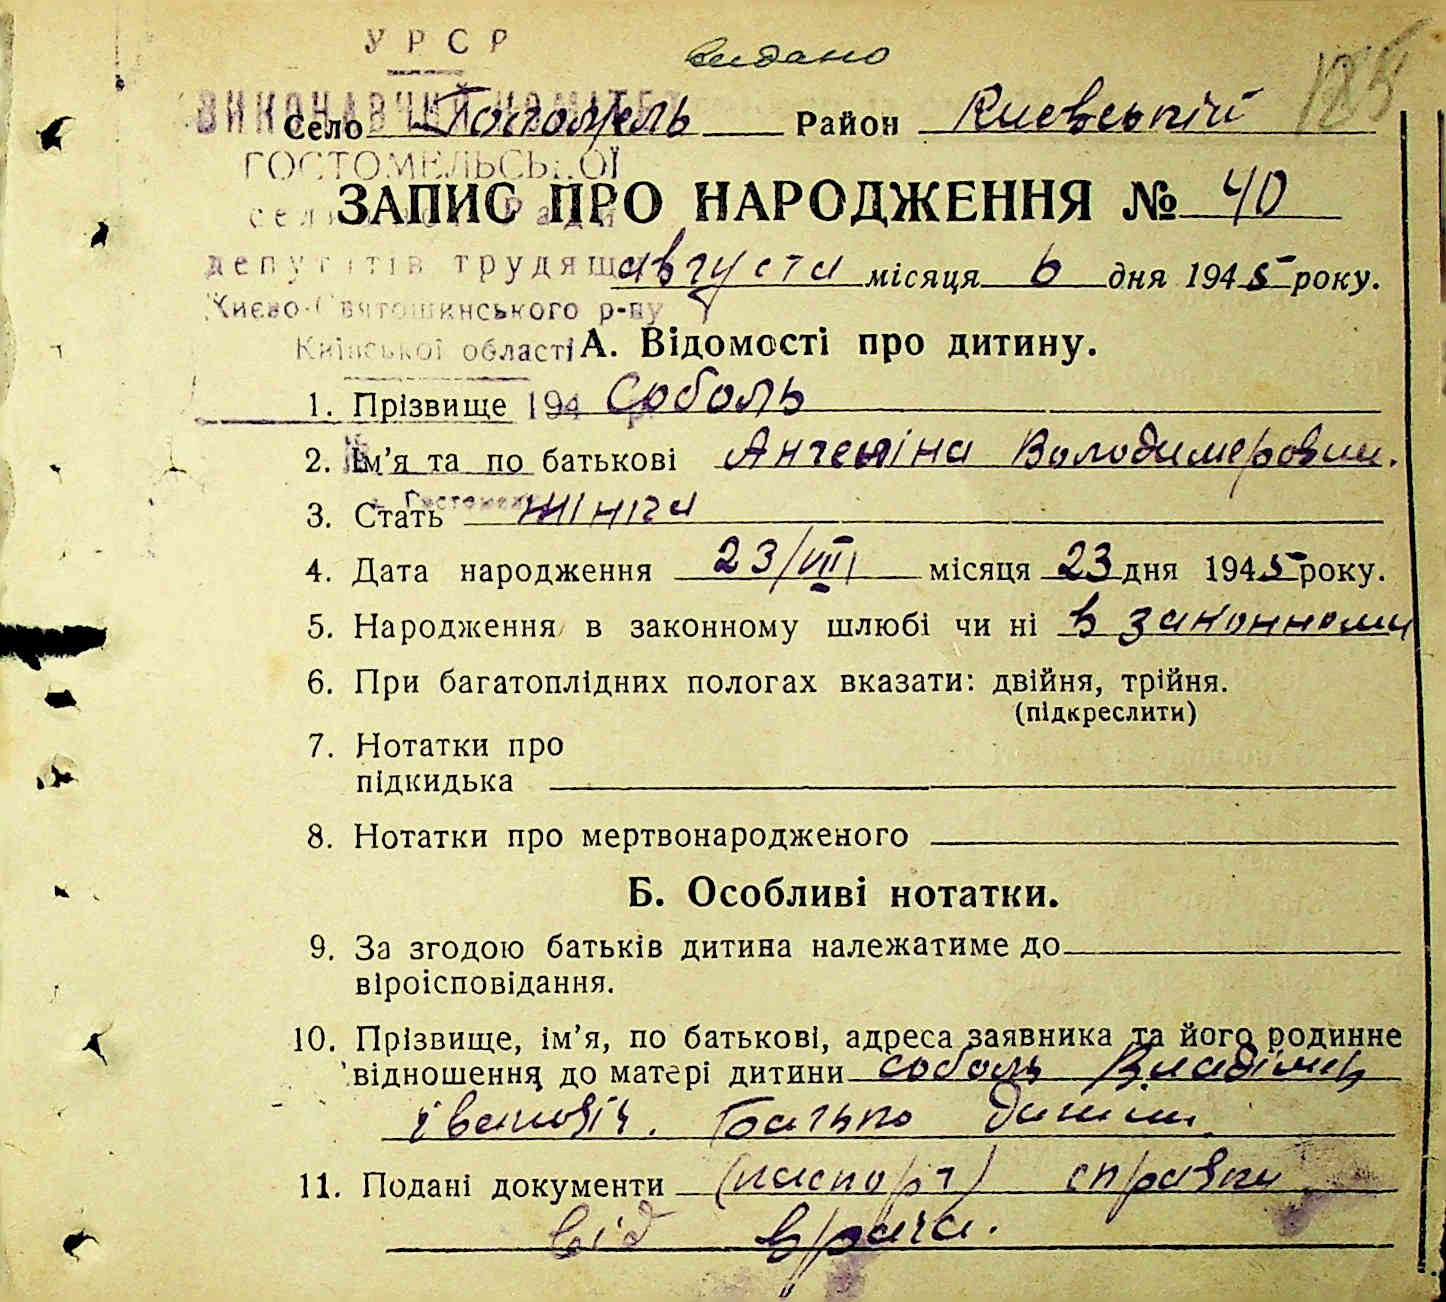 УРСР
видано
125
ВИКОНАВЧИЙ КОМІТЕТ
Село Гостомель Район Киевський
ГОСТОМЕЛЬСЬКОЇ
ЗАПИС ПРО НАРОДЖЕННЯ № 40
депутатів трудящ
августа місяця 6 дня 1945 року.
Києво-Святошинського р-ну
Київської області
А. Відомості про дитину.
1. Прізвище 194 Соболь
2. Ім'я та по батькові Антеніна Володимеровни.
3. Стать жіноча
4. Дата народження 23/VII місяця 23 дня 1945 року.
5. Народження в законному шлюбі чи ні в законному
6. При багатоплідних пологах вказати: двійня, трійня.
(підкреслити)
7. Нотатки про
підкидька
8. Нотатки про мертвонародженого
Б. Особливі нотатки.
9. За згодою батьків дитина належатиме до
віроісповідання.
10. Прізвище, ім'я, по батькові, адреса заявника та його родинне
відношення до матері дитини соболь Владімир
івановіч. батько дитини
11. Подані документи (паспорт) справки
від врача.